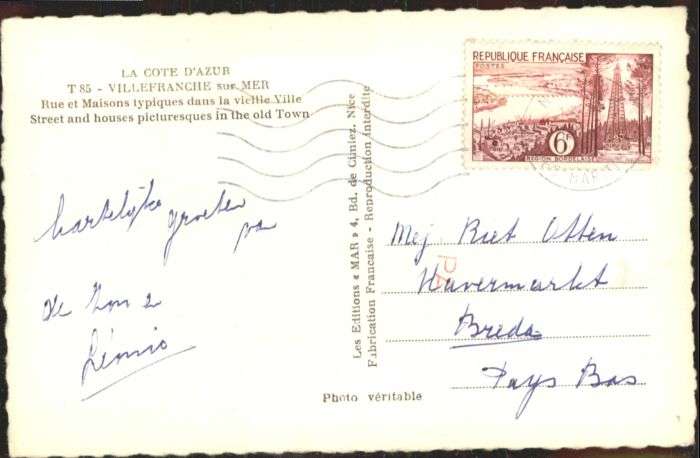 LA COTE D'AZUR
T 85 - VILLEFRANCHE sur MER
Rue et Maisons typiques dans la vieille Ville
Street and houses picturesques in the old Town
hartelijke
groeten
pa
Les Editions « MAR » 4, Bd. de Cimiez. Nice
Fabrication Française - Reproduction interdite
Photo véritable
REPUBLIQUE FRANÇAISE
POSTES
6F
REGION BORDELAISE
Mej Riet Otten
Havermarkt
Breda
Pays Bas